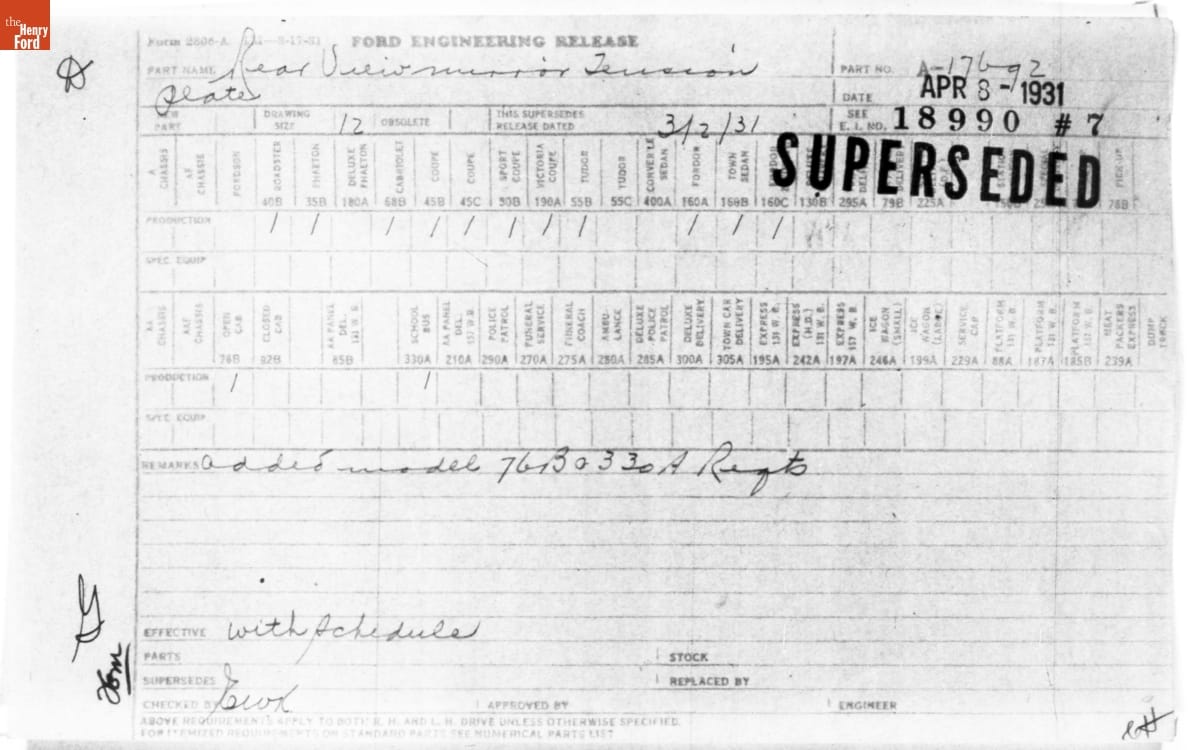 the Henry Ford
Form 2806-A
FORD ENGINEERING RELEASE
PART NAME Rear View mirror Tension
Plate
PART NO. A-17692
DATE APR 8-1931
NEW PART DRAWING SIZE 12 OBSOLETE THIS SUPERSEDES RELEASE DATED 3/2/31 SEE E. I. NO. 18990 #7
SUPERSEDED
A CHASSIS AF CHASSIS FORDSON ROADSTER 40B PHAETON 35B DELUXE PHAETON 180A CABRIOLET 68B COUPE 45B COUPE 45C SPORT COUPE 50B VICTORIA COUPE 190A TUDOR 55B TUDOR 55C CONVER'LE SEDAN 400A FORDOR 160A TOWN SEDAN 160B 160C 130B 295A 79B 225A PICK-UP 78B
PRODUCTION 1 1 1 1 1 1 1 1 1 1 1
SPEC. EQUIP
AA CHASSIS AAF CHASSIS OPEN CAB 76B CLOSED CAB 82B AA PANEL DEL. 131 W. B. 85B SCHOOL BUS 330A AA PANEL DEL. 157 W.B. 210A POLICE PATROL 290A FUNERAL SERVICE 270A FUNERAL COACH 275A AMBU-LANCE 280A DELUXE POLICE PATROL 285A DELUXE DELIVERY 300A TOWN CAR DELIVERY 305A EXPRESS 131 W. B. 195A EXPRESS (H.D.) 131 W. B. 242A EXPRESS 157 W. B. 197A ICE WAGON (SMALL) 246A ICE WAGON (LARGE) 199A SERVICE CAR 229A PLATFORM 131 W. B. 88A PLATFORM 187A PLATFORM 157 W. B. 185B MEAT PACKERS EXPRESS 239A DUMP TRUCK
PRODUCTION 1 1
SPEC. EQUIP
REMARKS added model 76B & 330A Reqts
EFFECTIVE with schedule
PARTS STOCK
SUPERSEDES REPLACED BY
CHECKED BY APPROVED BY ENGINEER
ABOVE REQUIREMENTS APPLY TO BOTH R. H. AND L. H. DRIVE UNLESS OTHERWISE SPECIFIED.
FOR ITEMIZED REQUIREMENTS ON STANDARD PARTS SEE NUMERICAL PARTS LIST